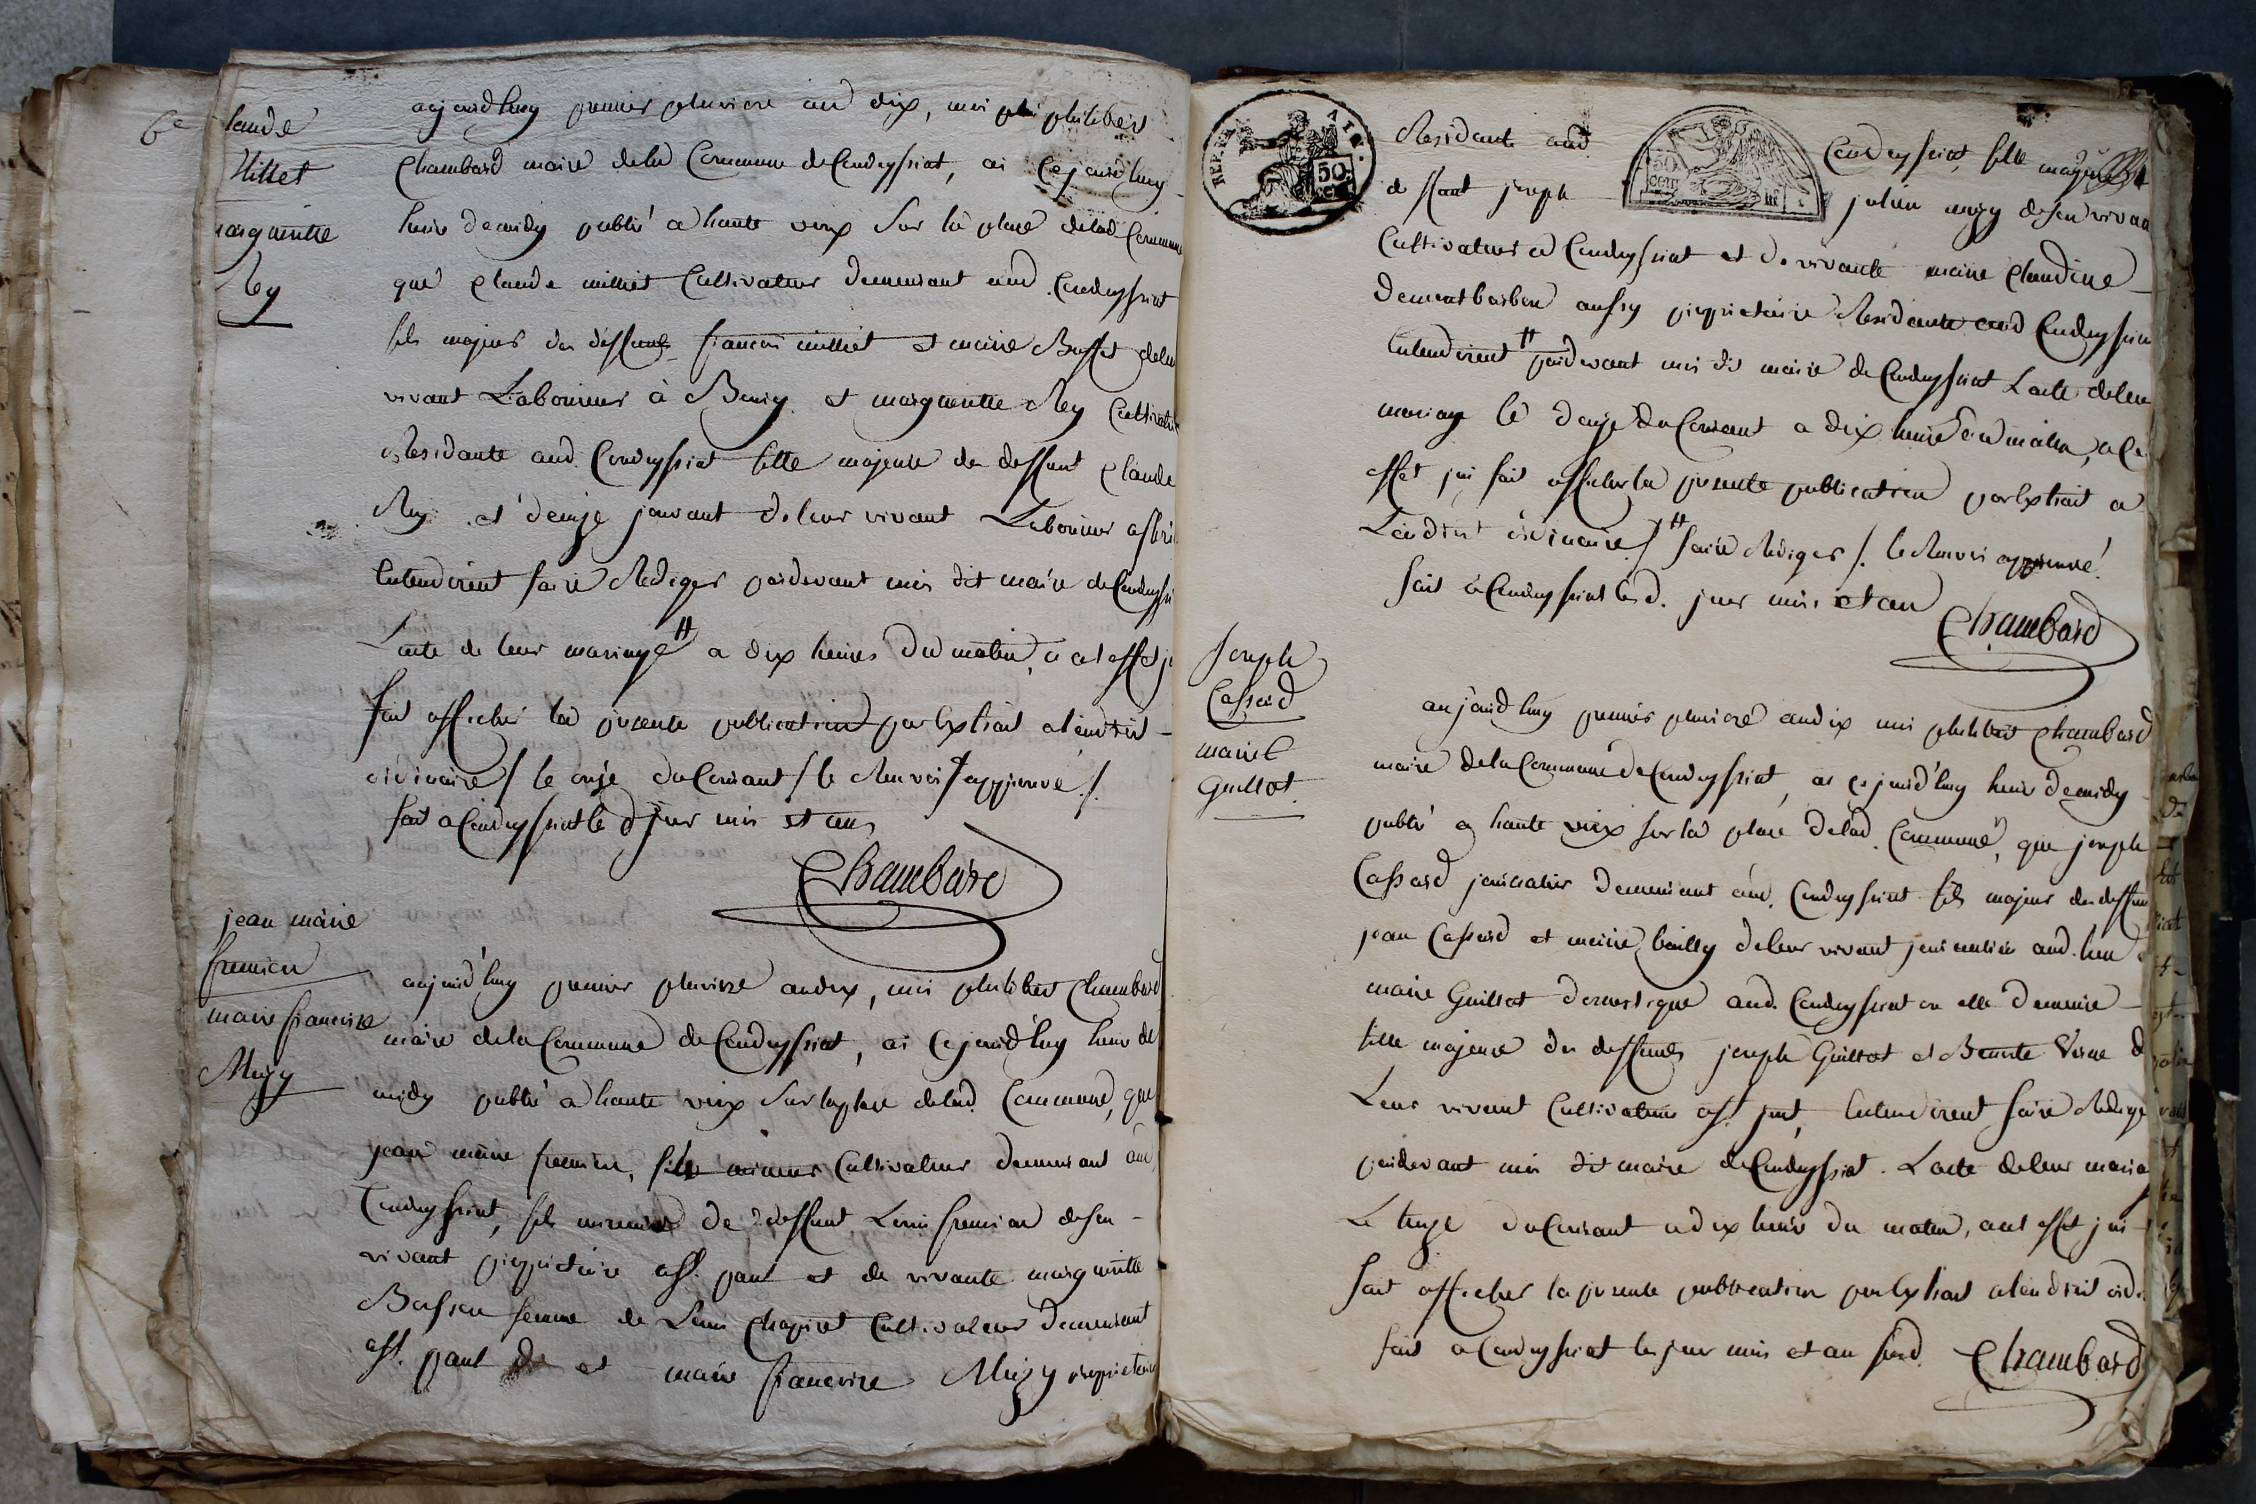 6e
laude
Millet
marguerite
Rey
aujourdhuy premier pluviose and dix, moi philibert
Chambard maire dela Commune de Condeyssiat, ai Cejourdhuy
heure demidy publié a haute voix Sur la place delad. Commune
que Claude milliet Cultivateur demeurant aud. Condeyssiat
fils majeur des deffunts francois milliet et marie Buffet deleur
vivant Laboureur à et marguerite Rey Cultivatrice
Residante aud. Condeyssiat fille majeure de deffunt Claude
Rey et deleur vivant Laboureur
Entendirent faire Rediger pardevant moi dit maire de Condeyssiat
L'acte de leur mariage # a dix heures du matin, a cet effet j'ai
fait afficher la presente publication par Extrait alendroit
ordinaire / # le onze du Courant / le Renvoi approuvé ./.
fait a Condeyssiat le d. jour mois et an
Chambard
jean marie
fremion
marie francoise
Mugy
aujourd'huy premier pluviose andix, moi philibert Chambard
maire dela Commune de Condeyssiat, ai Cejourd'huy heure de
midy publié a haute voix Sur laplace delad. Commune, que
jean marie fremion, fils mineur Cultivateur demeurant aud.
Condeyssiat, fils mineur de deffunt Louis fremion deson
vivant propriétaire a St. paul et de vivante marguerite
femme de Louis Chapuet Cultivateur demeurant
a St. paul et marie francoise Mugy propriétaire
REP. FRA. AIN.
50
CEN.
50
cen
Residante aud. Condeyssiat, fille majeure
de feant joseph julien mugy deson vivant
Cultivateur a Condeyssiat et de vivante marie Claudine
demontbarbon aussy propriétaire Residante aud Condeyssiat
Entendirent # pardevant moi dit maire de Condeyssiat Lacte deleur
mariage le douze du Courant a dix heure du matin, a Cet
effet jai fait afficher la presente publication par Extrait a
Lendroit ordinaire / # faire Rediger /. le Renvoi approuvé.
fait à Condeyssiat led. jour mois et an
Chambard
Joseph
Cassard
marie
Guillot
aujourd'huy premier pluviose andix moi philibert Chambard
maire dela Commune de Condeyssiat, ai Cejourd'huy heure demidy
publié a haute voix sur la place delad. Commune, que joseph
Cassard journalier demeurant aud. Condeyssiat fils majeur des deffunts
jean Cassard et marie bailly deleur vivant journalier aud. lieu
marie Guillot domestique aud. Condeyssiat ou elle demeure
fille majeure des deffunts joseph Guillot et Benoite de
Leur vivant Cultivateurs a St. just, Entendirent faire Rediger
pardevant moi dit maire de Condeyssiat. Lacte deleur mariage
Le treize du Courant a dix heure du matin, a cet effet j'ai
fait afficher la presente publication par Extrait alendroit ordi.
fait a Condeyssiat les jour mois et an susd. Chambard